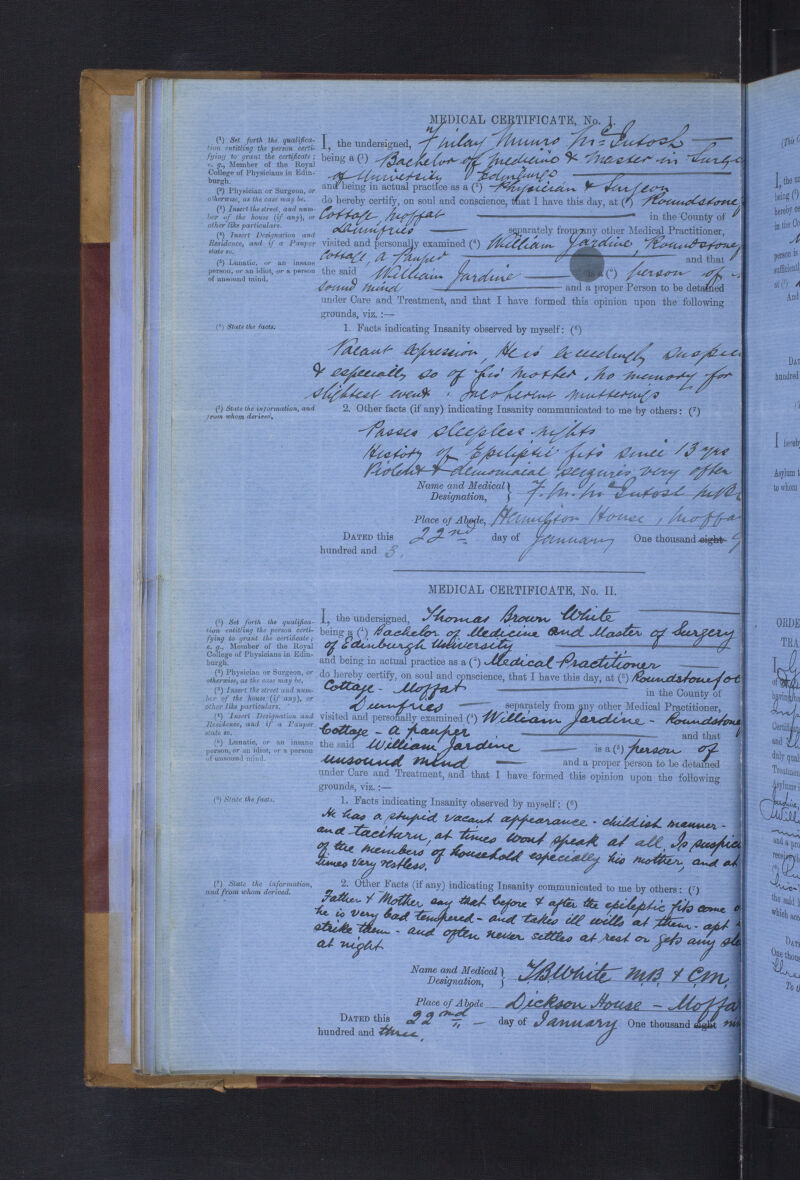 MEDICAL CERTIFICATE, No. I.
(¹) Set forth the qualifica-
tion entitling the person certi-
fying to grant the certificate;
e. g., Member of the Royal
College of Physicians in Edin-
burgh.
(²) Physician or Surgeon, or
otherwise, as the case may be.
(³) Insert the street, and num-
ber of the house (if any), or
other like particulars.
(⁴) Insert Designation and
Residence, and if a Pauper
state so.
(⁵) Lunatic, or an insane
person, or an idiot, or a person
of unsound mind.
I, the undersigned, Finlay Munro McIntosh
being a (¹) Bachelor of Medicine & Master in Surge
of University Edinburgh
and being in actual practice as a (²) Physician & Surgeon
do hereby certify, on soul and conscience, that I have this day, at (³) Roundstone
Cottage, Moffat in the County of
Dumfries separately from any other Medical Practitioner,
visited and personally examined (⁴) William Jardine, Roundstone
Cottage, a Pauper and that
the said William Jardine is a (⁵) person of
sound mind and a proper Person to be detained
under Care and Treatment, and that I have formed this opinion upon the following
grounds, viz. :—
(⁶) State the facts.
1. Facts indicating Insanity observed by myself: (⁶)
Vacant expression, He is exceedingly suspici
& especially so of his mother. No memory for
slightest event. Incoherent mutterings
(⁷) State the information, and
from whom derived.
2. Other facts (if any) indicating Insanity communicated to me by others: (⁷)
Passes sleepless nights
History of Epileptic fits since 13 yrs
Violent & demoniacal seizures very often
Name and Medical Designation, } F. M. McIntosh MB
Place of Abode, Hamilton House, Moffa
DATED this 22nd day of January One thousand eight
hundred and 3.
MEDICAL CERTIFICATE, No. II.
(¹) Set forth the qualifica-
tion entitling the person certi-
fying to grant the certificate;
e. g., Member of the Royal
College of Physicians in Edin-
burgh.
(²) Physician or Surgeon, or
otherwise, as the case may be.
(³) Insert the street and num-
ber of the house (if any), or
other like particulars.
(⁴) Insert Designation and
Residence, and if a Pauper
state so.
(⁵) Lunatic, or an insane
person, or an idiot, or a person
of unsound mind.
I, the undersigned, Thomas Brown White
being a (¹) Bachelor of Medicine and Master of Surgery
of Edinburgh University
and being in actual practice as a (²) Medical Practitioner
do hereby certify, on soul and conscience, that I have this day, at (³) Roundstonefoot
Cottage - Moffat in the County of
Dumfries separately from any other Medical Practitioner,
visited and personally examined (⁴) William Jardine - Roundstone
Cottage - a pauper and that
the said William Jardine is a (⁵) person of
unsound mind and a proper person to be detained
under Care and Treatment, and that I have formed this opinion upon the following
grounds, viz. :—
(⁶) State the facts.
1. Facts indicating Insanity observed by myself: (⁶)
He has a stupid vacant appearance - childish manner -
and taciturn, at times wont speak at all, Is suspici
of the members of household especially his mother, and at
times very restless.
(⁷) State the information,
and from whom derived.
2. Other Facts (if any) indicating Insanity communicated to me by others: (⁷)
Father & Mother say that before & after the epileptic fits come o
he is very bad tempered - and takes ill wills at them - apt
strike them - and often never settles at rest or gets any sle
at night
Name and Medical Designation, } T.B. White M.B. & C.M.
Place of Abode Dickson House - Moffa
DATED this 22nd day of January One thousand eight
hundred and three.